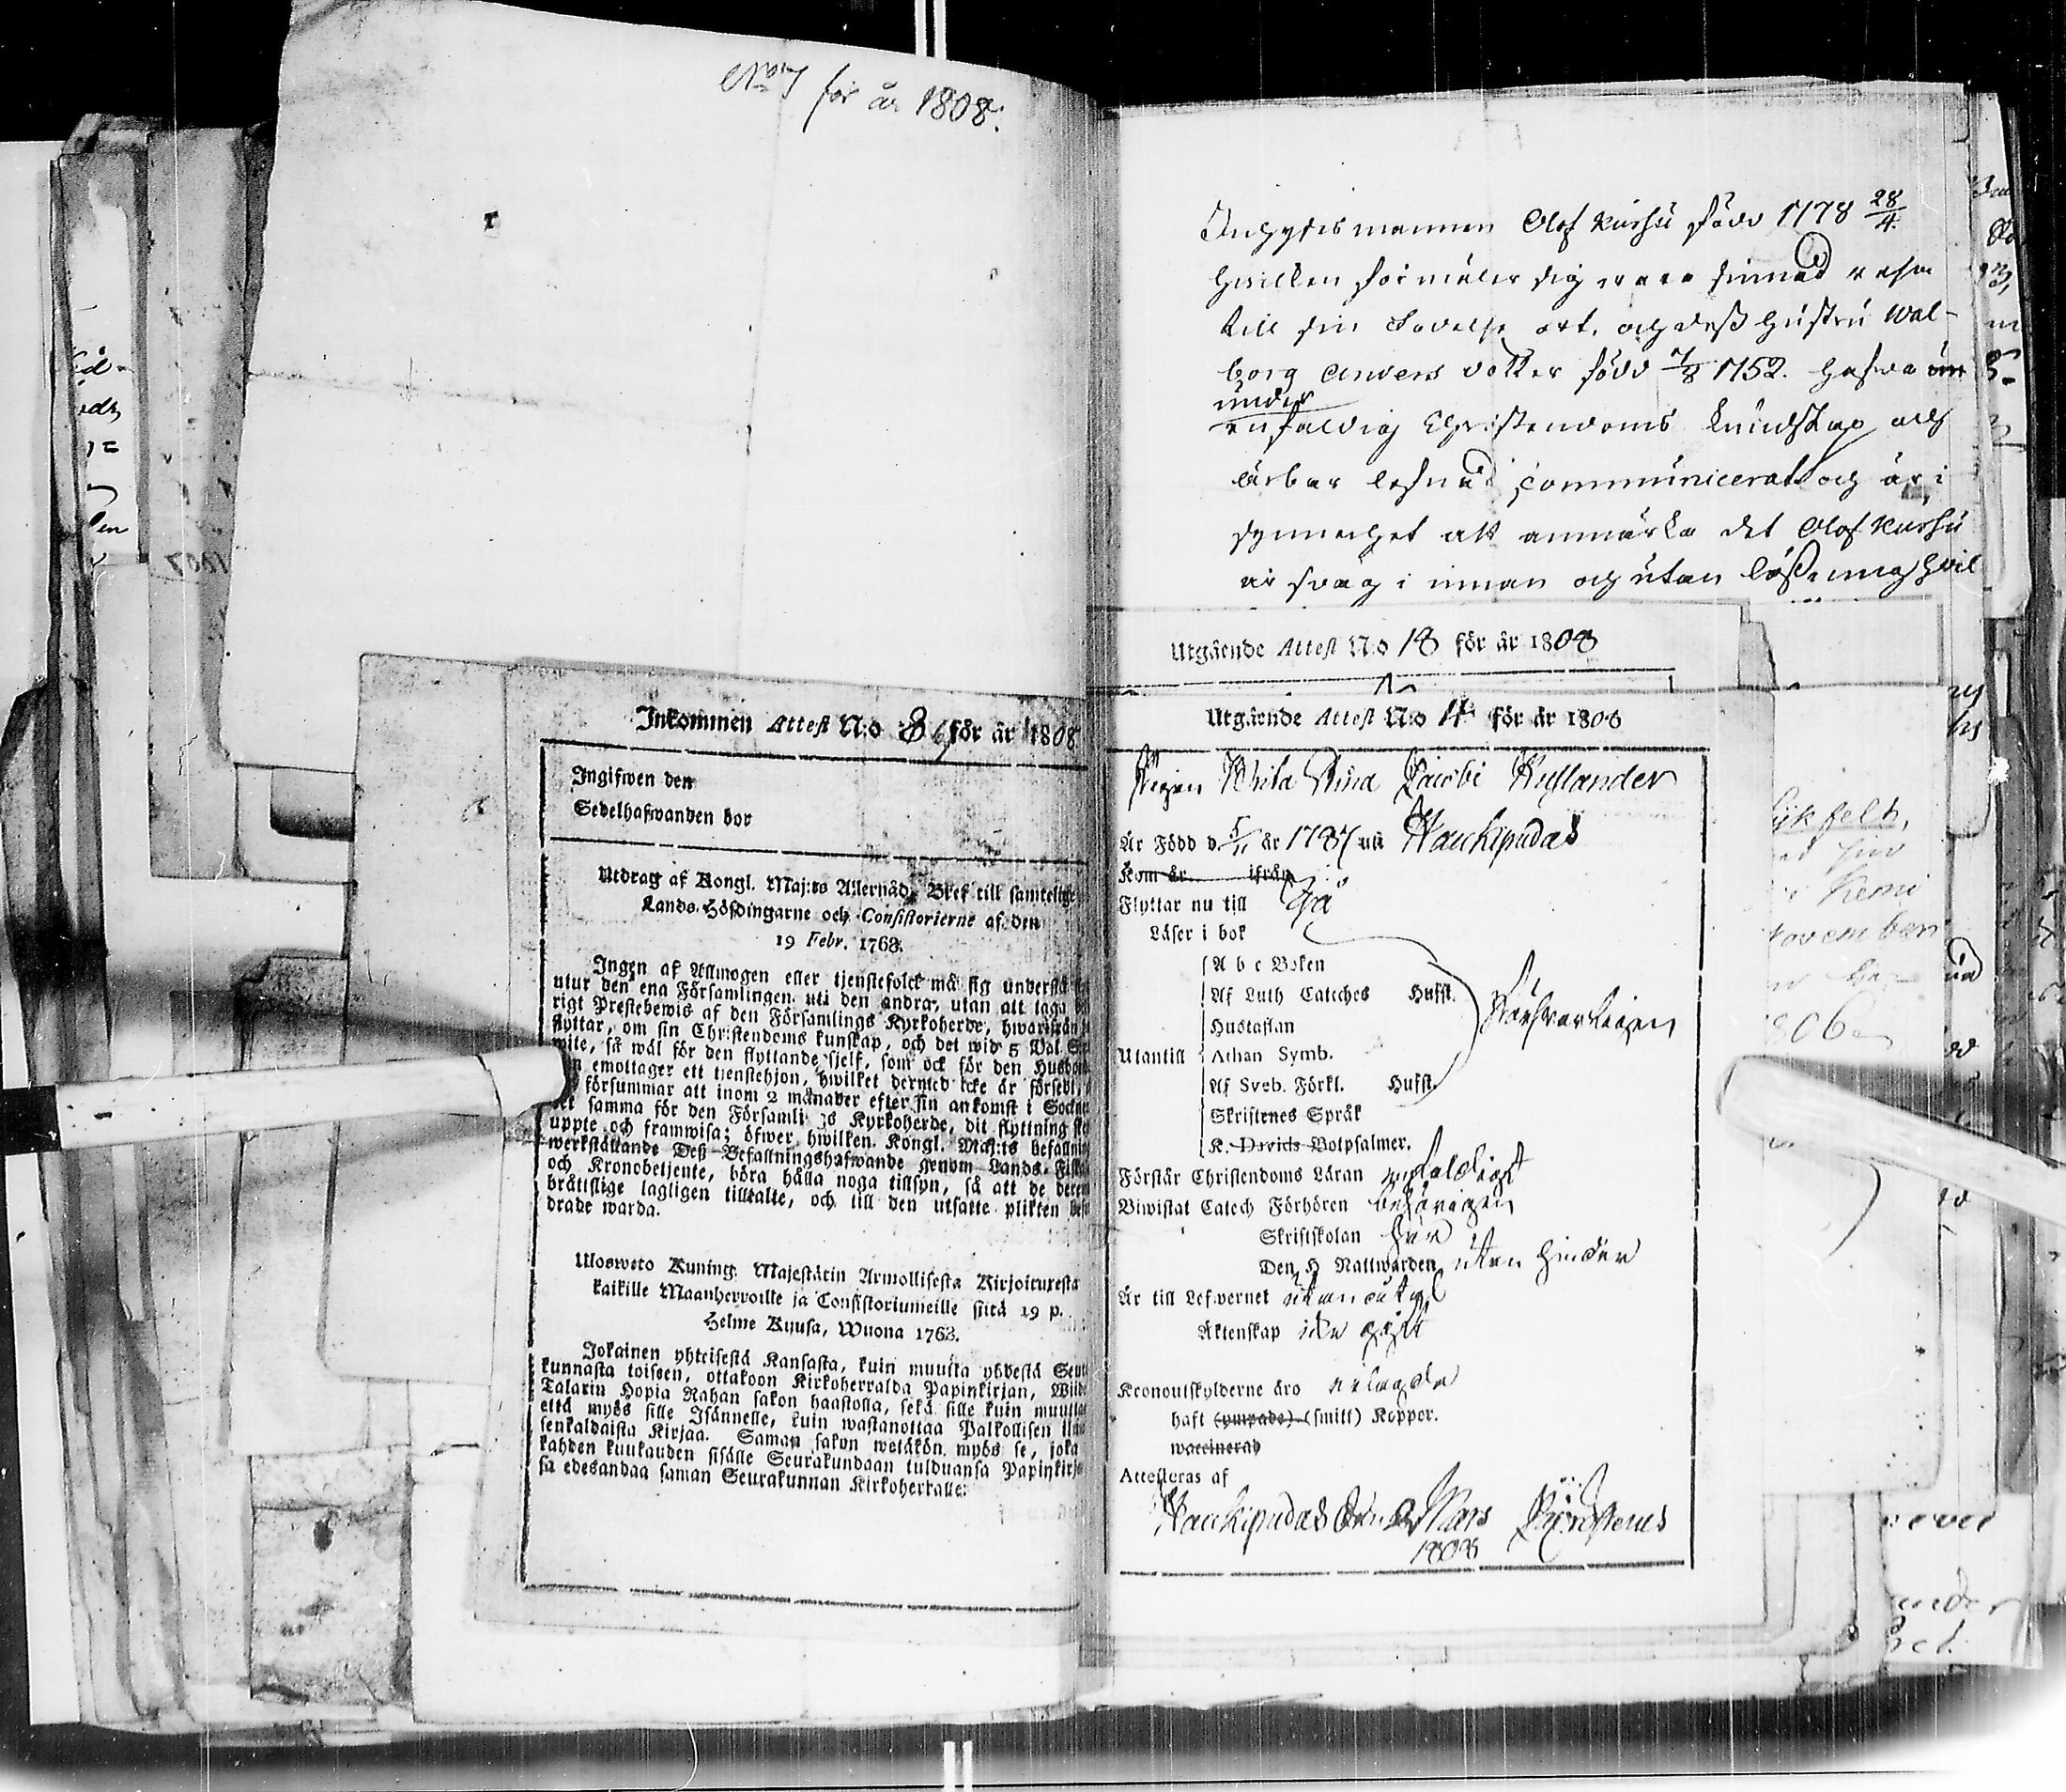 för år 1808.
Inhysesmannen Olof Kurhu född 1778 28/4.
hvilken förmäler sig vara sinnad resa
till sin födelse ort, och dess hustru Wal-
borg Anders dotter född 7/8 1752. hafva
under
enfaldig Christendoms kundskap och
ärbar lefnad communicerat och är i
synnerhet att anmärka det Olof Kurhu
är svag i innan och utan läsning hvil
Utgående Attest N:o 18 för år 1808
Inkommen Attest N:o 86 för år 1808
Ingifwen den
Sedelhafwanden bor
Utdrag af Kongl. Maj:ts Allernåd. Bref till samtelige
Lands-Höfdingarne och Consistorierne af den
19 Febr. 1768.
Ingen af Allmogen eller tjenstefolck må sig understå
utur den ena Församlingen uti den andra, utan att taga
rigt Prestebewis af den Församlings Kyrkoherde, hwarifrån
flyttar, om sin Christendoms kunskap, och det wid 5 Dal. S
wite, så wäl för den flyttande sjelf, som ock för den Husbon
emottager ett tjenstehjon, hwilket dermed icke är försedt,
försummar att inom 2 månader efter sin ankomst i Sockne
samma för den Församlings Kyrkoherde, dit flyttning
uppte och framwisa; öfwer hwilken Kongl. Maj:ts befallning
werkställande Deß Befallningshafwande genom Lands-Fiska
och Kronobetjente, böra hålla noga tillsyn, så att de deremot
bråttslige lagligen tilltalte, och till den utsatte plikten
drade warda.
Ulosweto Kuning. Majestätin Armollisesta Kirjoituxesta
kaikille Maanherroille ja Consistoriumeille siitä 19 p.
Helme Kuusa, Wuona 1763.
Jokainen yhteisestä Kansasta, kuin muutta yhdestä Seura
kunnasta toiseen, ottakoon Kirkoherralda Papinkirjan, Wiide
Talarin Hopia Rahan sakon haastolla, sekä sille kuin muutta
että myös sille Isännelle, kuin wastanottaa Palkollisen ilman
senkaldaista Kirjaa. Saman sakon wetäkön myös se, joka
kahden kuukauden sisälle Seurakundaan tulduansa Papinkirja
sa edesandaa saman Seurakunnan Kirkoherralle.
Utgående Attest N:o 4 för år 1808
Pigan Brita Stina Jacobi Kyllander
Är Född d 5/11 år 1787 uti Haukipudas
Kom år ifrån
Flyttar nu till Ijå
Läser i bok
A b c Boken
Af Luth Cateches Hufst.
Hustaflan
Utantill Athan Symb.
Försvarligen
Af Sveb. Förkl. Hufst.
Skriftenes Språk
K. Davids Botpsalmer.
Förstår Christendoms Läran enfaldigt
Biwistat Catech Förhören behörigen
Skriftskolan här
Den H Nattwarden utan hinder
Är till Lefwernet utan tadel
Äktenskap icke gift
Kronoutskylderne äro erlagde
haft (ympade) (smitt) Koppor.
waccinerad
Attesteras af
Haukipudas den 2 Mars
1808